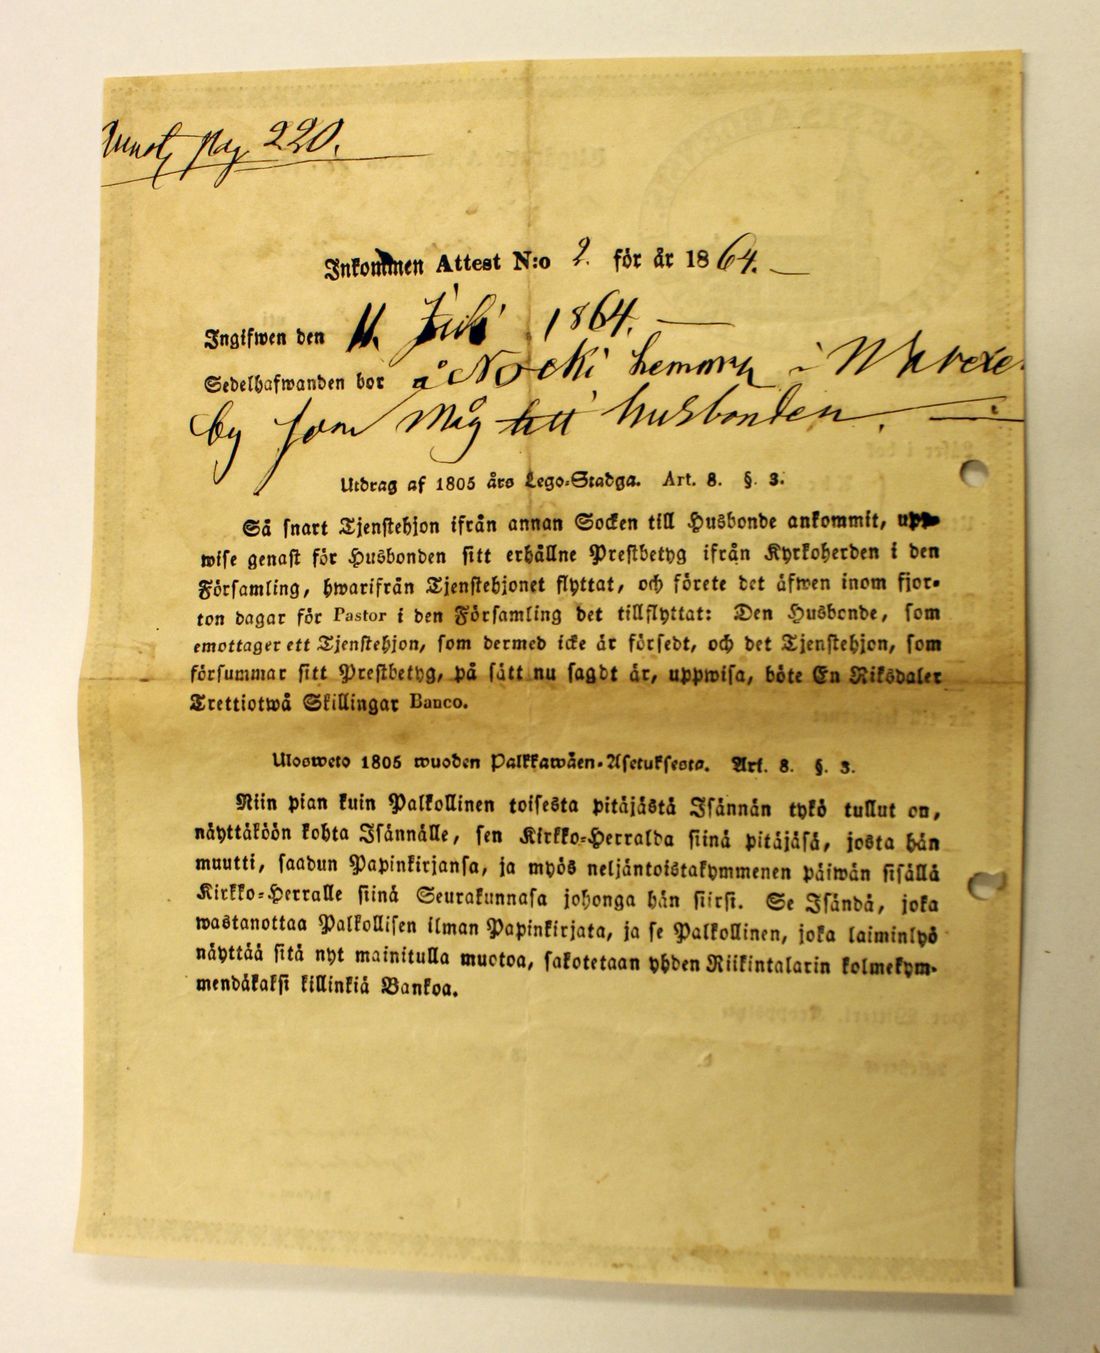 Annot. pag 220.
Inkommen Attest N:o 2. för år 1864.
Ingifwen den 11. Juli 1864.
Sedelhafwanden bor å Nocki hemman i
by som Måg till husbonden.
Utdrag af 1805 års Lego-Stadga. Art. 8. §. 3.
Så snart Tjenstehjon ifrån annan Socken till Husbonde ankommit, upp-
wise genast för Husbonden sitt erhållne Prestbetyg ifrån Kyrkoherden i den
Församling, hwarifrån Tjenstehjonet flyttat, och förete det äfwen inom fjor-
ton dagar för Pastor i den Församling det tillflyttat: Den Husbonde, som
emottager ett Tjenstehjon, som dermed icke är försedt, och det Tjenstehjon, som
försummar sitt Prestbetyg, på sätt nu sagdt är, uppwisa, böte En Riksdaler
Trettiotwå Skillingar Banco.
Ulosweto 1805 wuoden Palkkawäen-Asetuksesta. Art. 8. §. 3.
Niin pian kuin Palkollinen toisesta pitäjästä Isännän tykö tullut on,
näyttäköön kohta Isännälle, sen Kirkko-Herralda siinä pitäjäsä, josta hän
muutti, saadun Papinkirjansa, ja myös neljäntoistakymmenen päiwän sisällä
Kirkko-Herralle siinä Seurakunnasa johonga hän siirsi. Se Isändä, joka
wastanottaa Palkollisen ilman Papinkirjata, ja se Palkollinen, joka laiminlyö
näyttää sitä nyt mainitulla muotoa, sakotetaan yhden Riikintalarin kolmekym-
mendäkaksi killinkiä Bankoa.